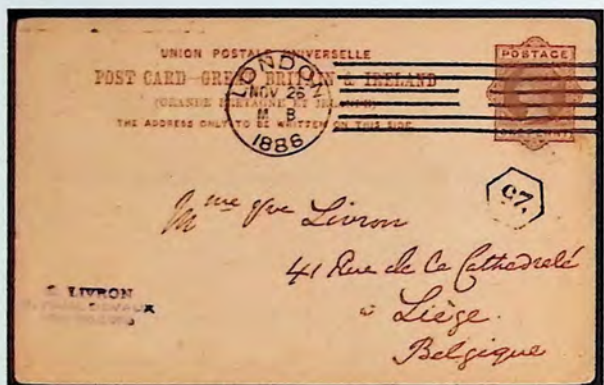 UNION POSTALE UNIVERSELLE
POST CARD GREAT BRITAIN & IRELAND
(GRANDE BRETAGNE ET IRLANDE)
THE ADDRESS ONLY TO BE WRITTEN ON THIS SIDE.
LONDON
NOV 26
M B
1886
POSTAGE
ONE PENNY
25
Mme Vve Livron
41 Rue de la Cathedrale
à Liège.
Belgique
LIVRON